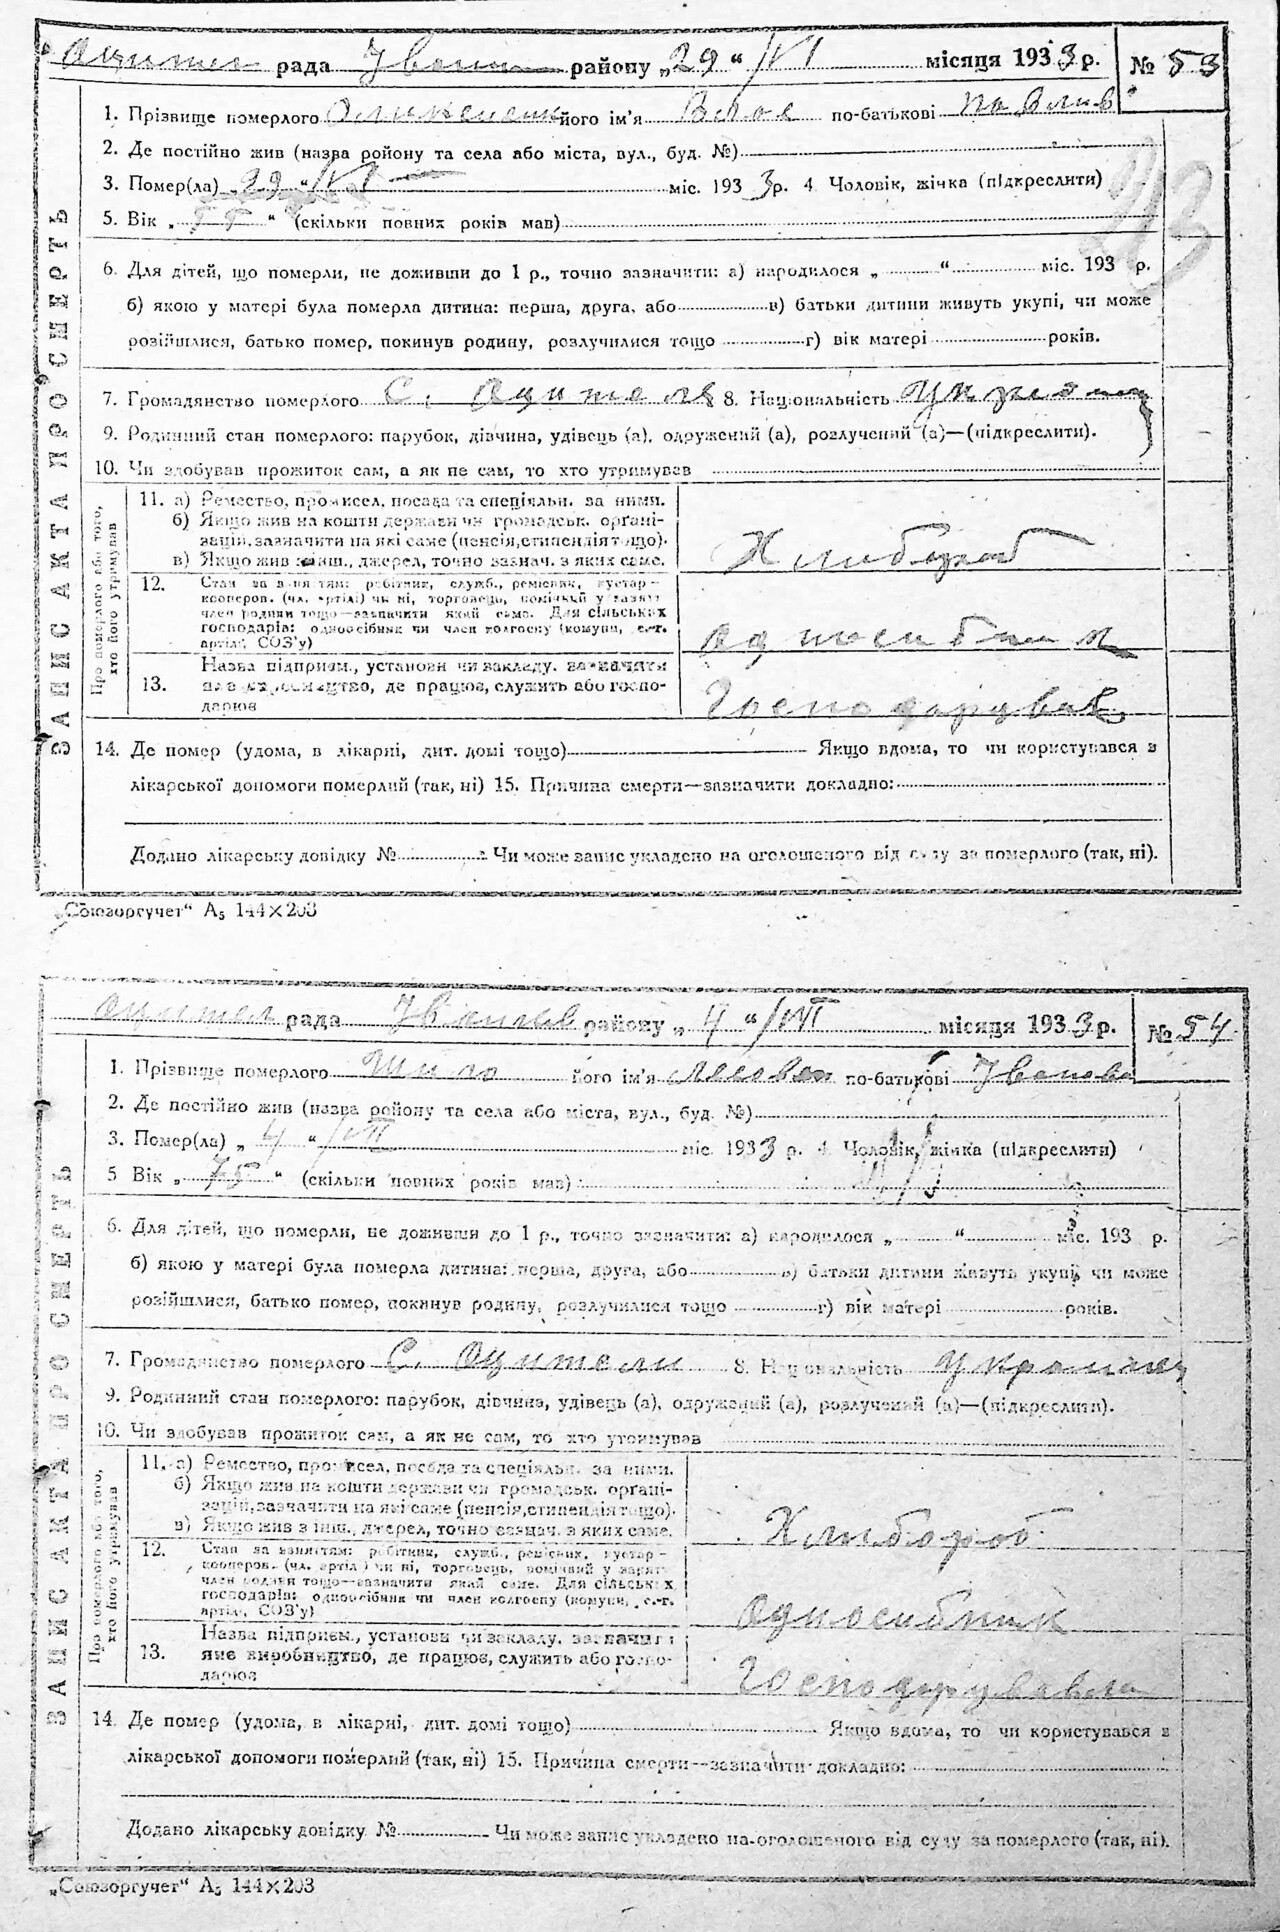 рада району „29“ /VI місяця 1933р. № 53
1. Прізвище померлого його ім'я по-батькові Павлив
2. Де постійно жив (назва ройону та села або міста, вул., буд. №)
3. Помер(ла) „29“ /VI міс. 1933р. 4 Чоловік, жічка (підкреслити)
5. Вік „55“ (скільки повних років мав)
6. Для дітей, що померли, не доживши до 1 р., точно зазначити: а) народилося „ “ міс. 193 р.
б) якою у матері була померла дитина: перша, друга, або в) батьки дитини живуть укупі, чи може
розійшлися, батько помер, покинув родину, розлучилися тощо г) вік матері років.
7. Громадянство померлого С. 8. Національність
9. Родинний стан померлого: парубок, дівчина, удівець (а), одружений (а), розлучений (а)—(підкреслити).
10. Чи здобував прожиток сам, а як не сам, то хто утримував
ЗАПИС АКТА ПРО СМЕРТЬ
Про померлого або того,
хто його утримував
11. а) Ремество, промисел, посада та спеціяльн. за ними.
б) Якщо жив на кошти держави чи громадськ. орґані-
зацій, зазначити на які саме (пенсія, стипендія тощо).
в) Якщо жив з інш., джерел, точно зазнач. з яких саме.
Хлибороб
12. Стан за заняттям: робітник, служб., ремісник, кустар—
кооперов. (чл. артілі) чи ні, торговець,
член родини тощо—зазначити який саме. Для сільських
господарів: одноосібник чи член колгоспу (комуни, с.-г.
артілі, СОЗ'у)
односибник
13. Назва підприєм., установи чи закладу, зазначити
де працює, служить або госпо-
дарює
Господарував
14. Де помер (удома, в лікарні, дит. домі тощо) Якщо вдома, то чи користувався з
лікарської допомоги померлий (так, ні) 15. Причина смерти—зазначити докладно:
Додано лікарську довідку № Чи може запис укладено на оголошеного від суду за померлого (так, ні).
„Союзоргучет“ А5 144×203
рада району „4“ /VII місяця 1933р. № 54
1. Прізвище померлого Шило його ім'я по-батькові Иванова
2. Де постійно жив (назва району та села або міста, вул., буд. №)
3. Помер(ла) „4“ /VII міс. 1933 р. 4 Чоловік, жінка (підкреслити)
5 Вік „75“ (скільки повних років мав)
6. Для дітей, що померли, не доживши до 1 р., точно зазначити: а) народилося „ “ міс. 193 р.
б) якою у матері була померла дитина: перша, друга, або в) батьки дитини живуть укупі, чи може
розійшлися, батько помер, покинув родину, розлучилися тощо г) вік матері років.
7. Громадянство померлого С. Оцители 8. Національність
9. Родинний стан померлого: парубок, дівчина, удівець (а), одружений (а), розлучений (а)—(підкреслити).
10. Чи здобував прожиток сам, а як не сам, то хто утримував
ЗАПИС АКТА ПРО СМЕРТЬ
Про померлого або того,
хто його утримував
11. а) Ремество, промисел, посада та спеціяльн. за ними.
б) Якщо жив на кошти держави чи громадськ. орґані-
зацій, зазначити на які саме (пенсія, стипендія тощо).
в) Якщо жив з інш., джерел, точно зазнач. з яких саме.
Хлибороб
12. Стан за заняттям: робітник, служб., ремісник, кустар—
кооперов. (чл. артілі) чи ні, торговець,
член родини тощо—зазначити який саме. Для сільських
господарів: одноосібник чи член колгоспу (комуни, с.-г.
артілі, СОЗ'у)
односибник
13. Назва підприєм., установи чи закладу, зазначити
яке виробництво, де працює, служить або госпо-
дарює
Господарувала
14. Де помер (удома, в лікарні, дит. домі тощо) Якщо вдома, то чи користувався з
лікарської допомоги померлий (так, ні) 15. Причина смерти—зазначити докладно:
Додано лікарську довідку № Чи може запис укладено на оголошеного від суду за померлого (так, ні).
„Союзоргучет“ А5 144×203